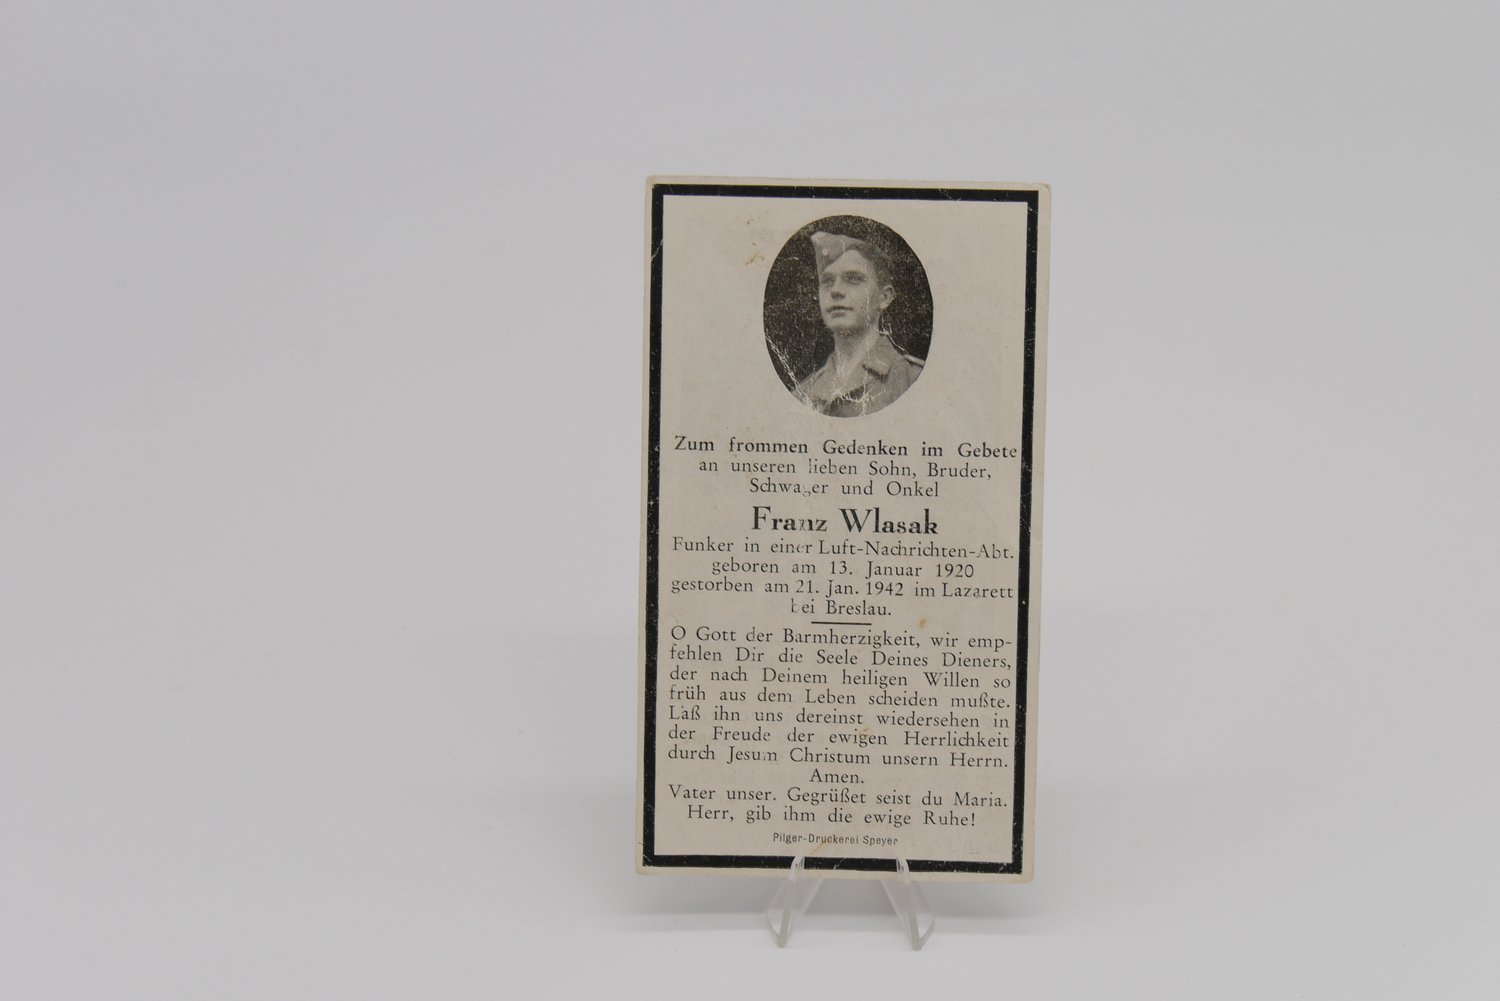 Zum frommen Gedenken im Gebete
an unseren lieben Sohn, Bruder,
Schwager und Onkel
Franz Wlasak
Funker in einer Luft-Nachrichten-Abt.
geboren am 13. Januar 1920
gestorben am 21. Jan. 1942 im Lazarett
bei Breslau.
O Gott der Barmherzigkeit, wir emp-
fehlen Dir die Seele Deines Dieners,
der nach Deinem heiligen Willen so
früh aus dem Leben scheiden mußte.
Laß ihn uns dereinst wiedersehen in
der Freude der ewigen Herrlichkeit
durch Jesum Christum unsern Herrn.
Amen.
Vater unser. Gegrüßet seist du Maria.
Herr, gib ihm die ewige Ruhe!
Pilger-Druckerei Speyer